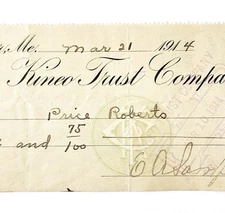 Me. Mar 21 1914
Kineo Trust Compa
Price Roberts
and 75/100
E A Samp